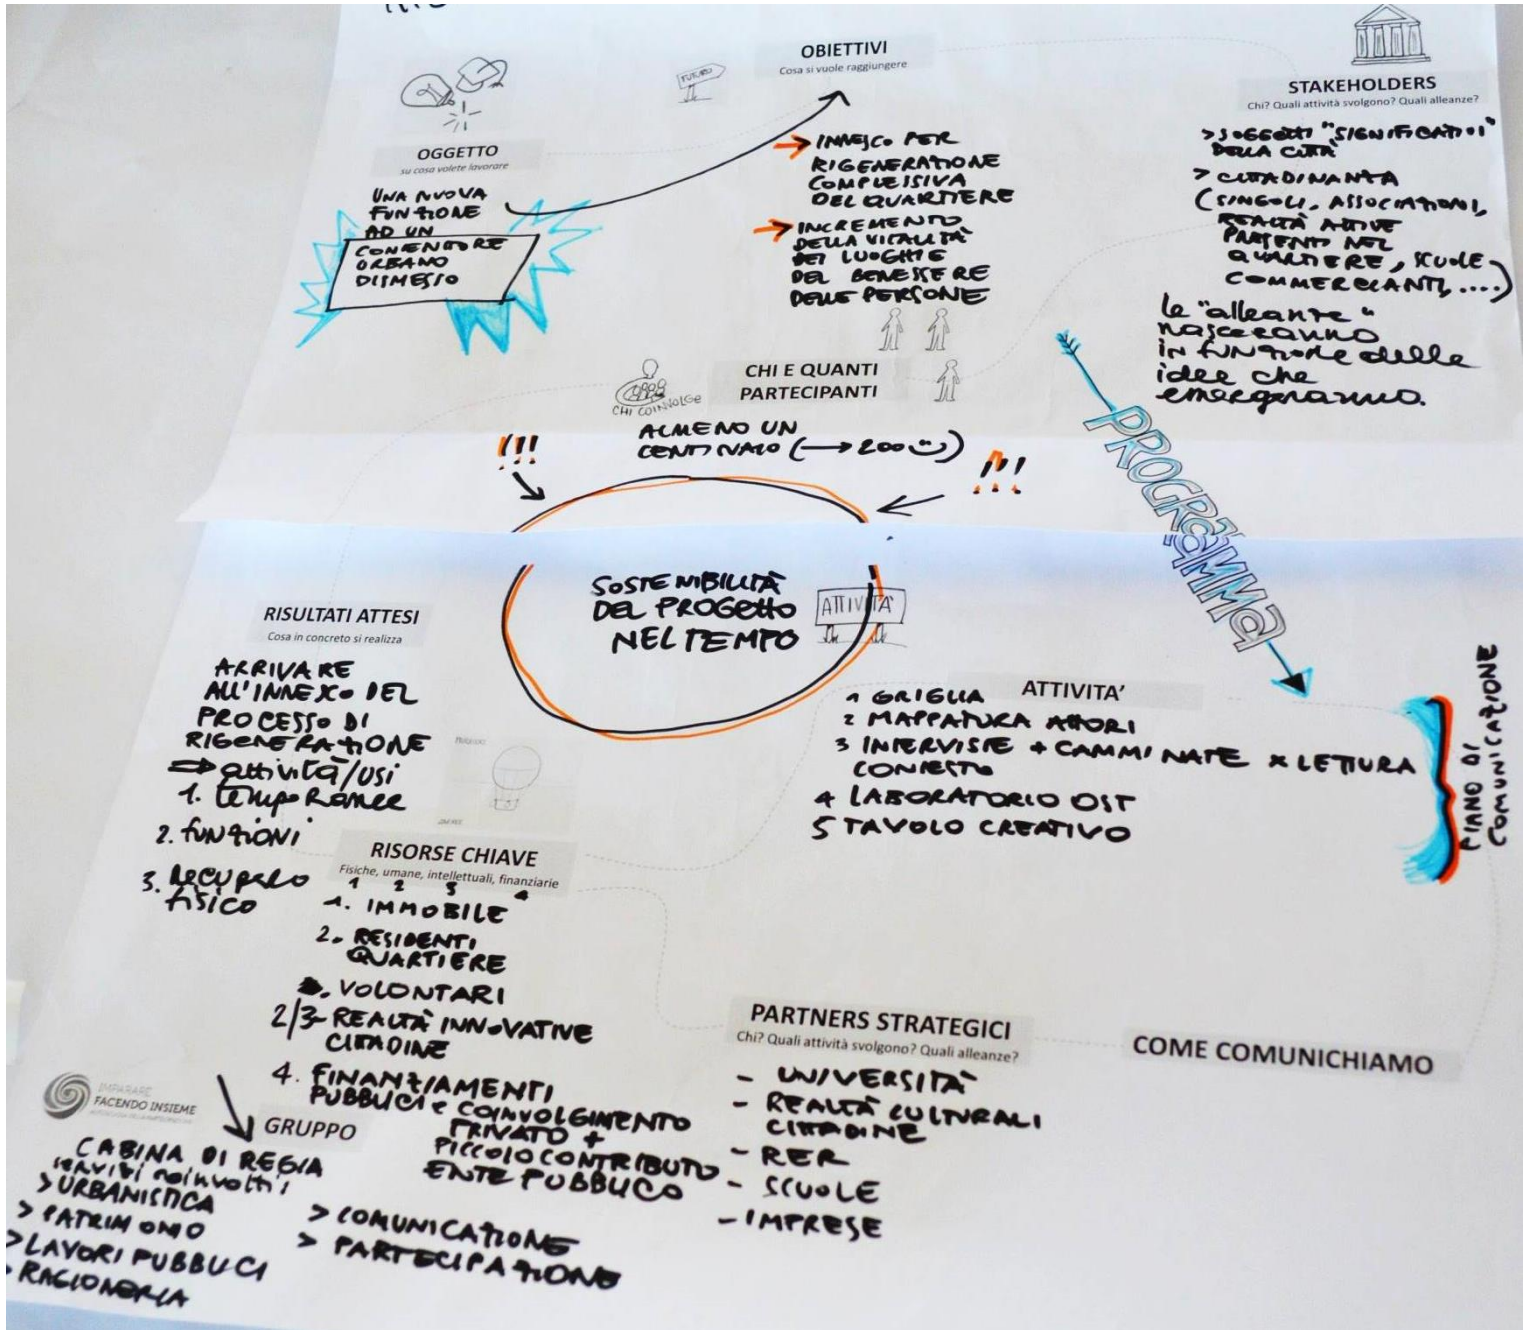 OGGETTO
su cosa volete lavorare
UNA NUOVA
FUNZIONE
AD UN
CONTENITORE
URBANO
DISMESSO
FUTURO
OBIETTIVI
Cosa si vuole raggiungere
→ INNESCO PER
RIGENERAZIONE
COMPLESSIVA
DEL QUARTIERE
→ INCREMENTO
DELLA VITALITÀ
DEI LUOGHI E
DEL BENESSERE
DELLE PERSONE
STAKEHOLDERS
Chi? Quali attività svolgono? Quali alleanze?
> SOGGETTI "SIGNIFICATIVI"
DELLA CITTÀ
> CITTADINANZA
(SINGOLI, ASSOCIAZIONI,
REALTÀ ATTIVE
PRESENTI NEL
QUARTIERE, SCUOLE
COMMERCIANTI, ....)
le "alleanze"
nasceranno
in funzione delle
idee che
emergeranno.
CHI COINVOLGE
CHI E QUANTI
PARTECIPANTI
ALMENO UN
CENTINAIO (→ 200 ☺)
!!!
!!!
PROGRAMMA
SOSTENIBILITÀ
DEL PROGETTO
NEL TEMPO
ATTIVITÀ
RISULTATI ATTESI
Cosa in concreto si realizza
ARRIVARE
ALL'INNESCO DEL
PROCESSO DI
RIGENERAZIONE
⇒ attività/usi
1. temporanee
2. funzioni
3. Recupero
fisico
ATTIVITA'
1 GRIGLIA
2 MAPPATURA ATTORI
3 INTERVISTE + CAMMINATE x LETTURA
CONTESTO
4 LABORATORIO OST
5 TAVOLO CREATIVO
PIANO DI
COMUNICAZIONE
RISORSE CHIAVE
Fisiche, umane, intellettuali, finanziarie
1 2 3 4
1. IMMOBILE
2. RESIDENTI
QUARTIERE
. VOLONTARI
2/3- REALTÀ INNOVATIVE
CITTADINE
4. FINANZIAMENTI
PUBBLICI e COINVOLGIMENTO
PRIVATO +
PICCOLO CONTRIBUTO
ENTE PUBBLICO
PARTNERS STRATEGICI
Chi? Quali attività svolgono? Quali alleanze?
- UNIVERSITÀ
- REALTÀ CULTURALI
CITTADINE
- RER
- SCUOLE
- IMPRESE
COME COMUNICHIAMO
IMPARARE
FACENDO INSIEME
GRUPPO
CABINA DI REGIA
servizi coinvolti:
> URBANISTICA
> PATRIMONIO
> LAVORI PUBBLICI
RAGIONERIA
> COMUNICAZIONE
> PARTECIPAZIONE